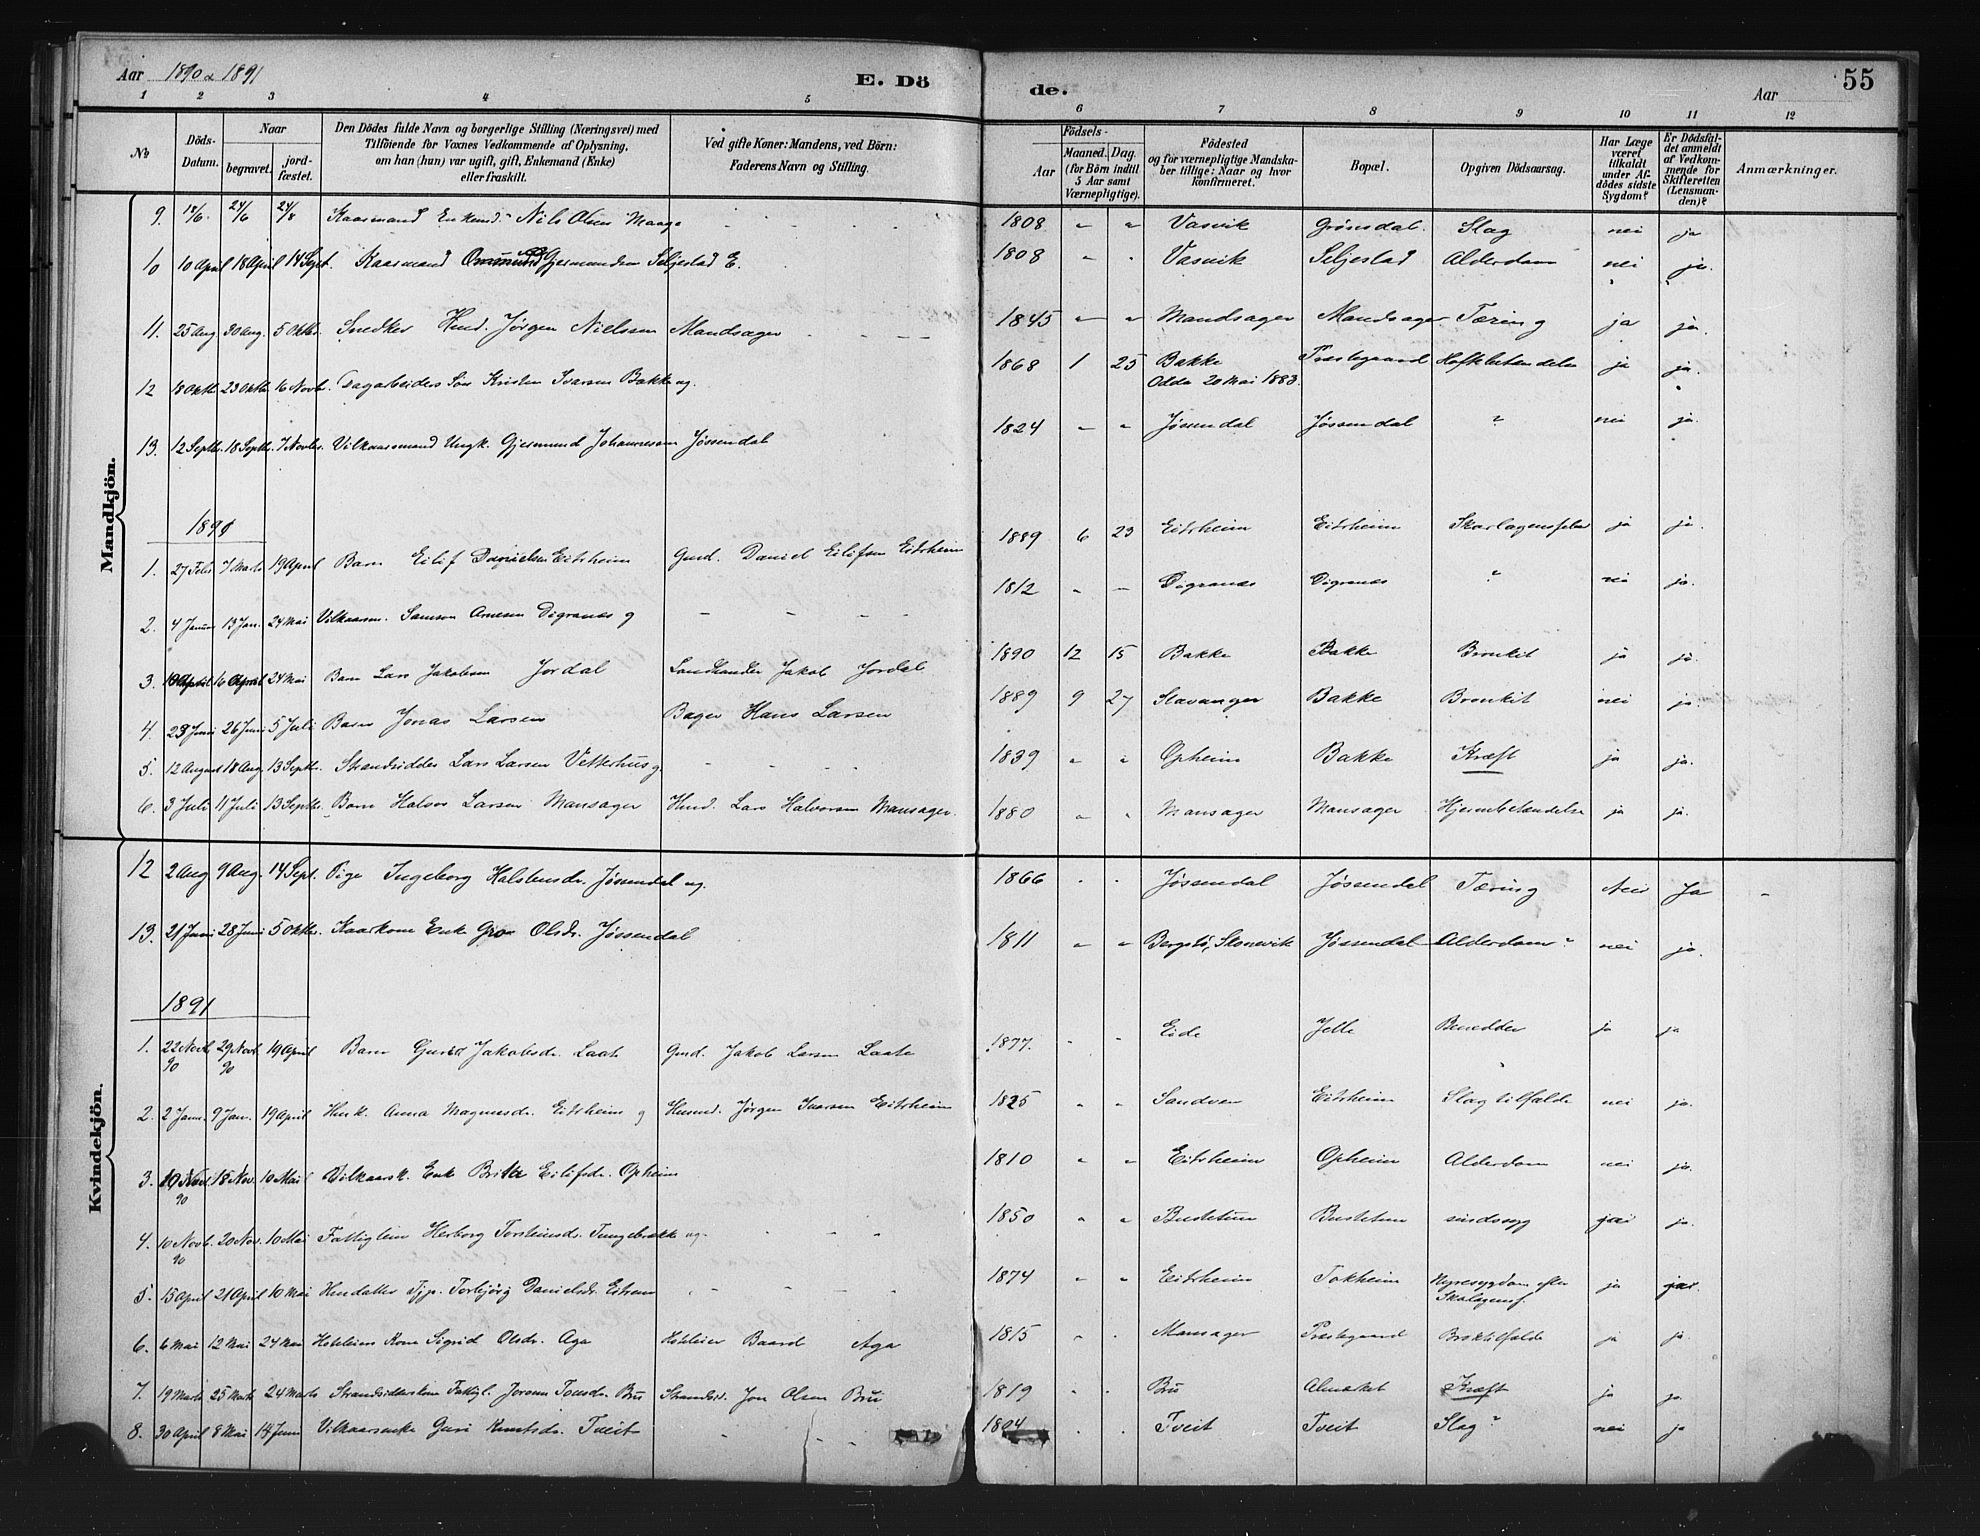 Aar 1890 & 1891 E. Dö de. Aar 55
1 2 3 4 5 6 7 8 9 10 11 12
No Döds-Datum. Naar begravet. jordfæstet. Den Dödes fulde Navn og borgerlige Stilling (Næringsvei) med Tilföiende for Voxnes Vedkommende af Oplysning, om han (hun) var ugift, gift, Enkemand (Enke) eller fraskilt. Ved gifte Koner: Mandens, ved Börn: Faderens Navn og Stilling. Födsels- Aar Maaned. Dag. (for Börn indtil 5 Aar samt Værnepligtige). Födested og for værnepligtige Mandskaber tillige: Naar og hvor konfirmeret. Bopæl. Opgiven Dödsaarsag. Har Læge været tilkaldt under Afdödes sidste Sygdom? Er Dödsfaldet anmeldt af Vedkommende for Skifteretten (Lensmanden)? Anmærkninger.
Mandkjön.
9. 18/6. 24/6 24/8 Kaarmand Enkemd. Nils Olsen Maage - - - 1808 " " Vasvik Grönsdal. Slag nei ja
10 10 April 18 April 14 Sept. Kaarmand Gjermundsen Seljestad E. 1808 " " Vasvik Seljestad Alderdom nei ja.
11. 25 Aug 30 Aug. 5 Oktbr. Snedker Hmd. Jörgen Nielssen Mandsager - - - 1845 " " Mandsager Mandsager Tæring ja ja.
12 18 Oktb. 23 Oktb 16 Novb. Dagarbeiders Sön Kristen Ivarsen Bakke ug. 1868 1 25 Bakke Odda 20 Mai 1883. Præstegaard Hoftebetændelse ja ja.
13. 12 Septbr. 18 Septbr. 7 Novbr. Vilkaarsmand Ungk. Gjermund Johannessen Jössendal 1824 " " Jössendal Jössendal ? nei ja.
1891
1. 27 Febr 7 Marts 19 April Barn Eilif Danielsen Eitrheim Gmd. Daniel Eilifsen Eitrheim 1889 6 23 Eitrheim Eitrheim Skarlagensfeber ja ja.
2. 4 Januar 13 Jan. 24 Mai Vilkaarsm. Samson Arnesen Digranæs g - - - 1812 " " Digranæs Digranæs ? nei ja.
3. 10 April 16 April 24 Mai Barn Lars Jakobsen Jordal Landhandler Jakob Jordal 1890 12 15 Bakke Bakke Bronkit ja ja.
4. 23 Juni 26 Juni 5 Juli Barn Jonas Larsen Bager Hans Larsen 1889 9 27 Stavanger Bakke Bronkit nei ja.
5. 12 August 18 Aug. 13 Septbr. Strandsidder Lars Larsen Vetterhus g. - - - 1839 " " Opheim Bakke Kræft ja ja.
6. 3 Juli 11 Juli 13 Septbr. Barn Halvor Larsen Mansager Hmd. Lars Halvorsen Mansager. 1880 " " Mansager Mansager Hjernebetændelse ja ja.
Kvindekjön.
12 2 Aug 9 Aug. 14 Sept. Pige Ingeborg Halstensdr. Jössendal ug. 1866 " " Jössendal Jössendal Tæring Nei Ja -
13. 21 Juni 28 Juni 5 Oktbr. Kaarkone Enk Gro Olsdr. Jössendal 1811 " " Bergstö, Skonevik Jössendal Alderdom ? nei ja.
1891
1. 22 Novb. 90 29 Novb. 90 19 April Barn Guri Jakobsdr. Laate Gmd. Jakob Larsen Laate 1877. " " Eide Jelle Benedder ja ja
2. 2 Janr. 9 Jan. 19 April Husk. Anna Magnusdr. Eitrheim g Husmd. Jörgen Ivarsen Eitrheim 1825 " " Sandven Eitrheim Slagtilfælde nei ja.
3. 10 Novb. 90 18 Nov. 10 Mai Vilkaarsk. Enk Brita Eilifsdr. Opheim 1810 " " Eitrheim Opheim Alderdom nei ja.
4. 10 Novb. 90 20 Nov. 10 Mai Fattiglem Herborg Torsteinsdr. Tungebrekke ug. - - - 1850 " " Bustetun Bustetun sindssyg ja.
5. 15 April 21 April 10 Mai Husdatter Tjp. Torbjörg Danielsdr. Eitrem - - - 1874 " " Eitrheim Tokheim Nyresygdom efter Skalagensf. ja ja.
6. 6 Mai 12 Mai 24 Mai Hoteleiers Kone Sigrid Olsdr. Aga Hoteleier Baard Aga 1815 " " Mansager Præstegaard Broktilfælde ja ja.
7. 19 Marts 25 Marts 24 Marts Strandsidderskone Fattigl. Joronn Tonsdr. Bru Strandsid. Jon Olsen Bru 1819 " " Bru Almerket Kræft ja ja.
8. 30 April 8 Mai 14 Juni Vilkaarsenke Guri Knutsdr. Tveit - - - 1804 " " Tveit Tveit Slag ? nei ja